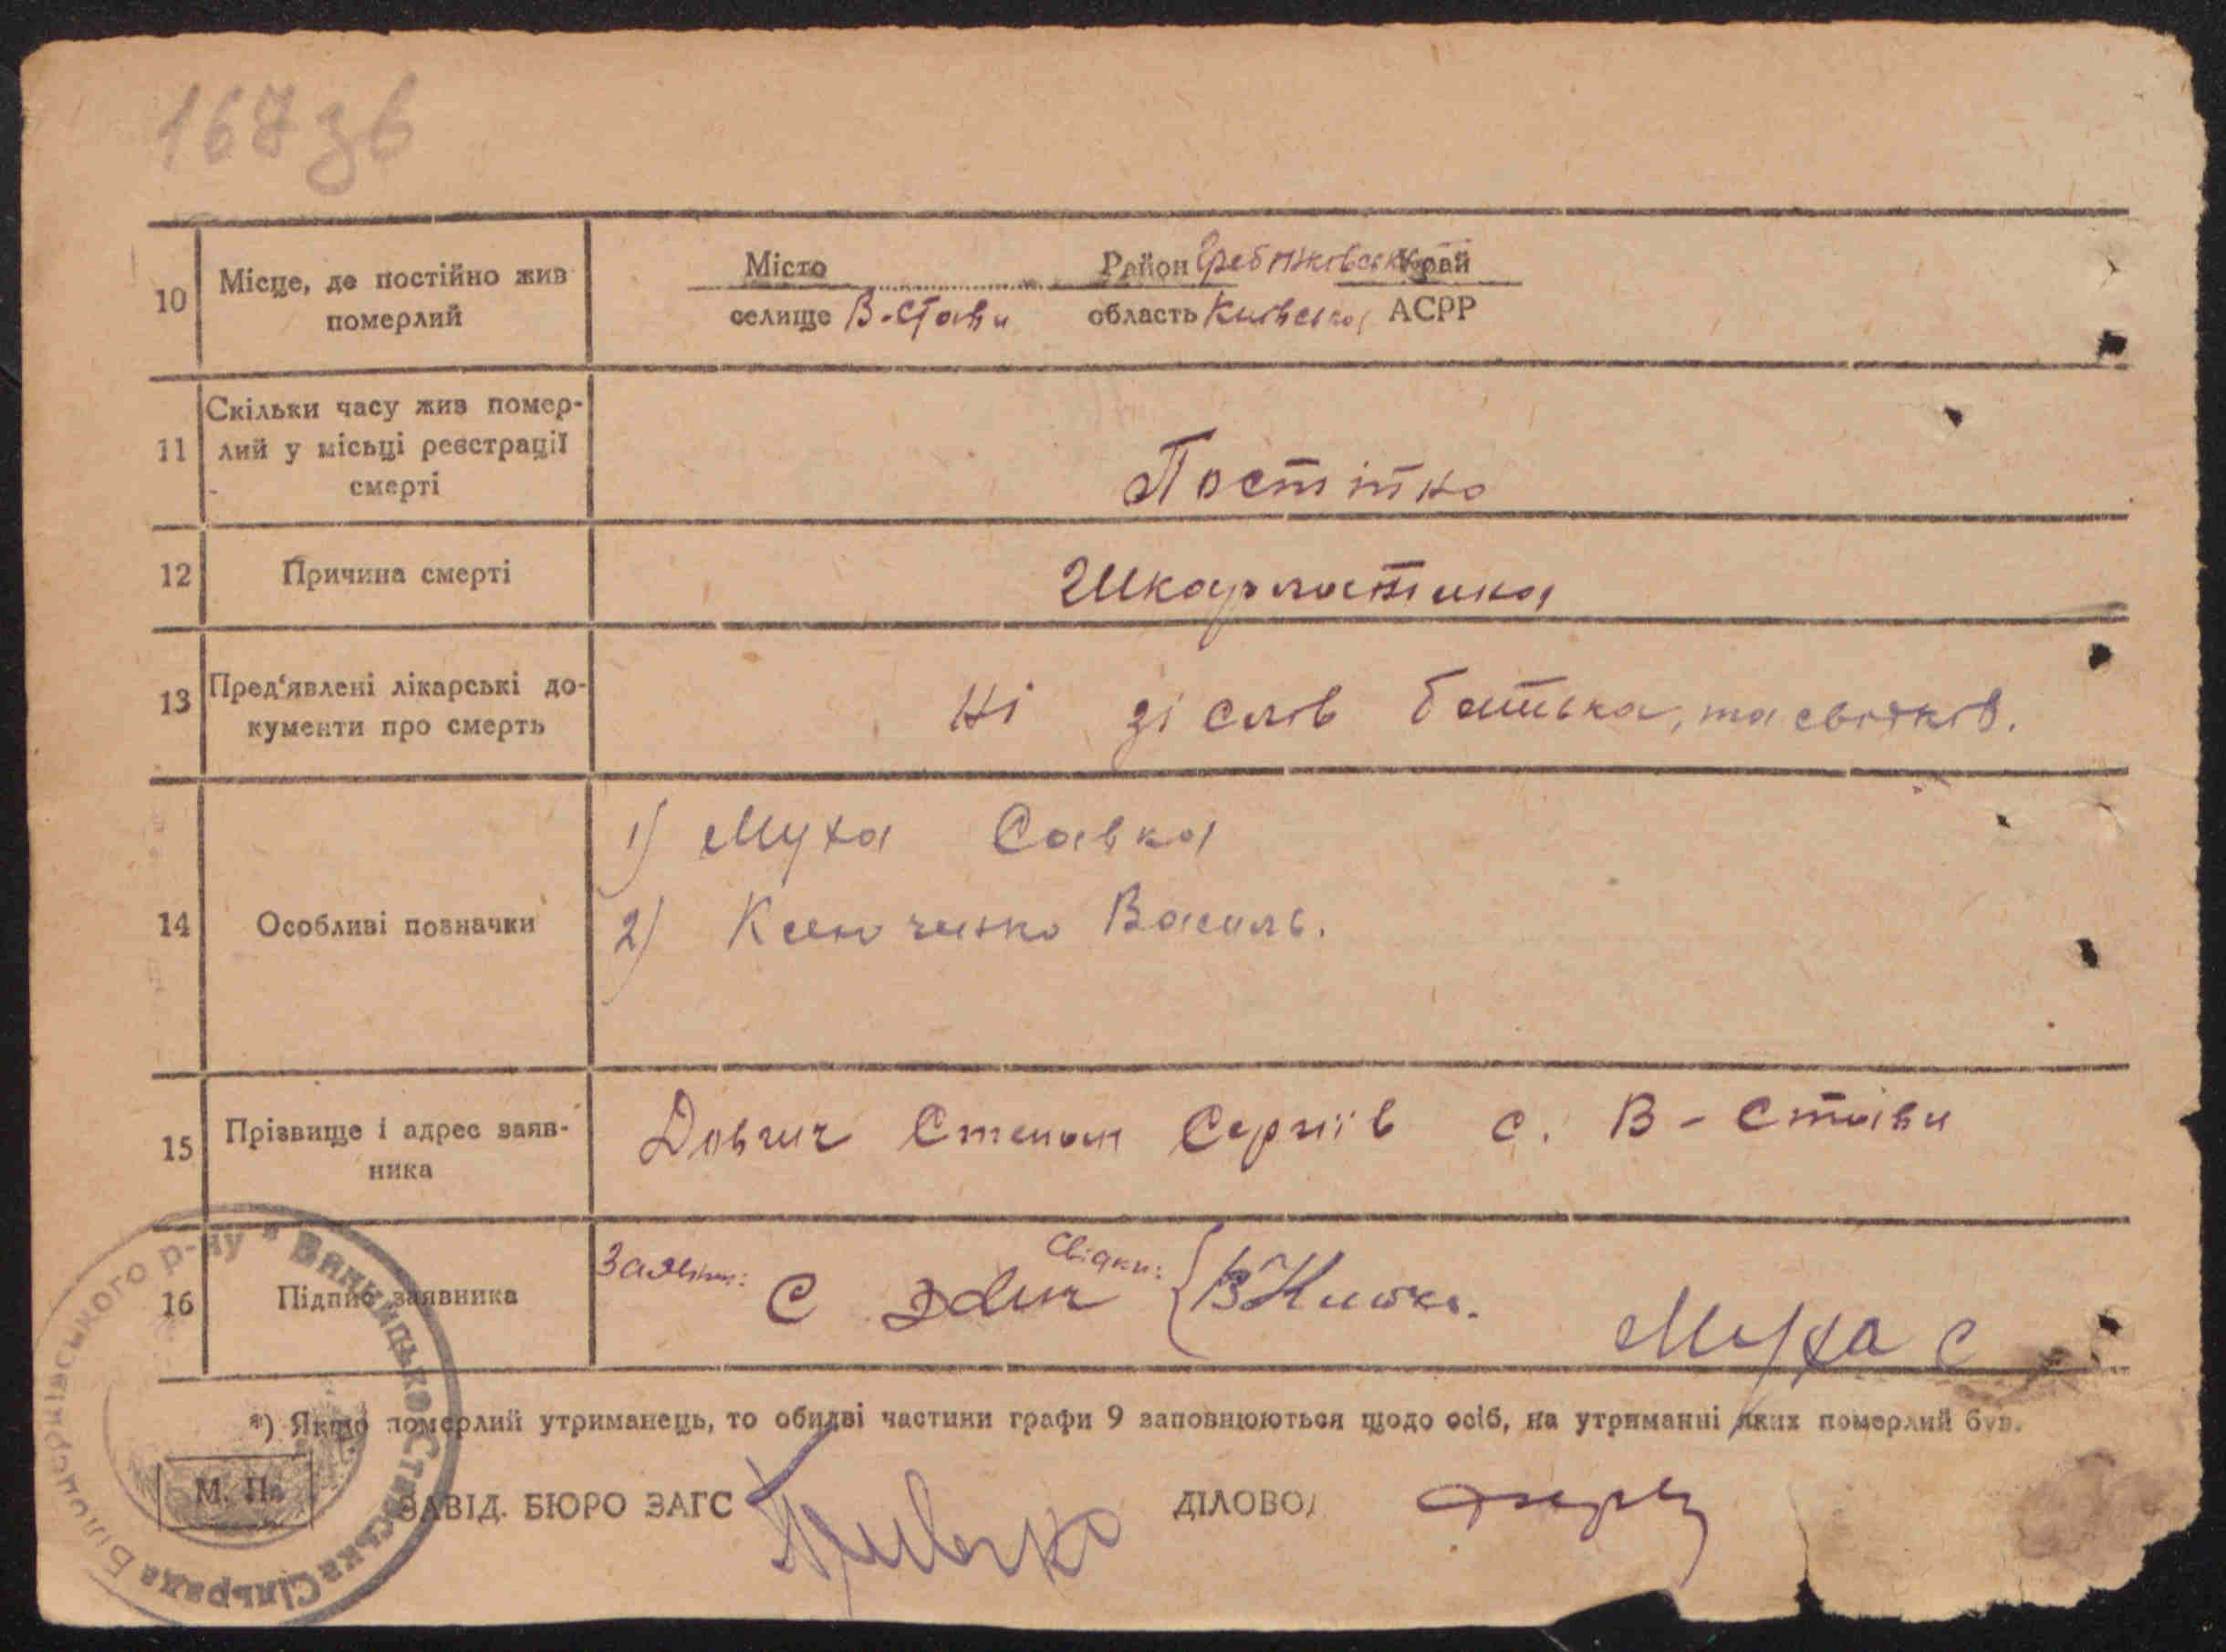 167зв
10 Місце, де постійно жив померлий
Місто Район Гребінківськ Край
селище В-Стави область Київська АСРР
11 Скільки часу жив помер-
лий у місьці реєстрації
смерті
Постійно
12 Причина смерті Шкарлатина
13 Пред'явлені лікарські до-
кументи про смерть
Ні зі слів батька, та свідків.
14 Особливі позначки
1) Муха Савка
2) Василь.
15 Прізвище і адрес заяв-
ника
Довгич Степан Сергіїв с. В-Стави
16 Підпис заявника
Заявник: С Свідки: Муха С
*) Якщо померлий утриманець, то обидві частини графи 9 заповнюються щодо осіб, на утриманні яких померлий був.
М. П.
ЗАВІД. БЮРО ЗАГС ДІЛОВОД
Винницько-Ставська Сільрада Білоцерківського р-ну